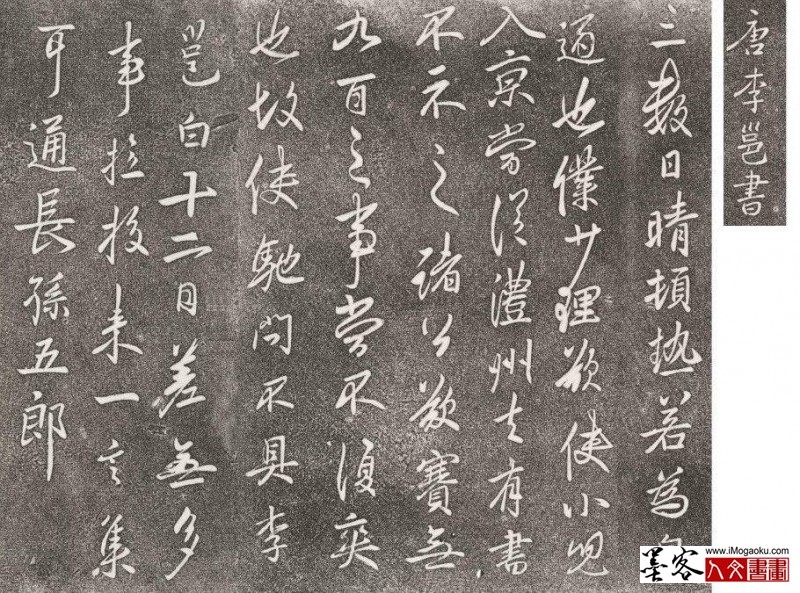 唐李邕書
三數日晴頓熱若為
適也僕少理欲使小兒
入京當從澧州去有書
不示之諸公欲賽無
九百之事當不復爽
也故使馳問不具李
邕白十二日差無多
事拉投來一言集
耳通長孫五郎
www.iMogaoku.com
墨客人文書畫